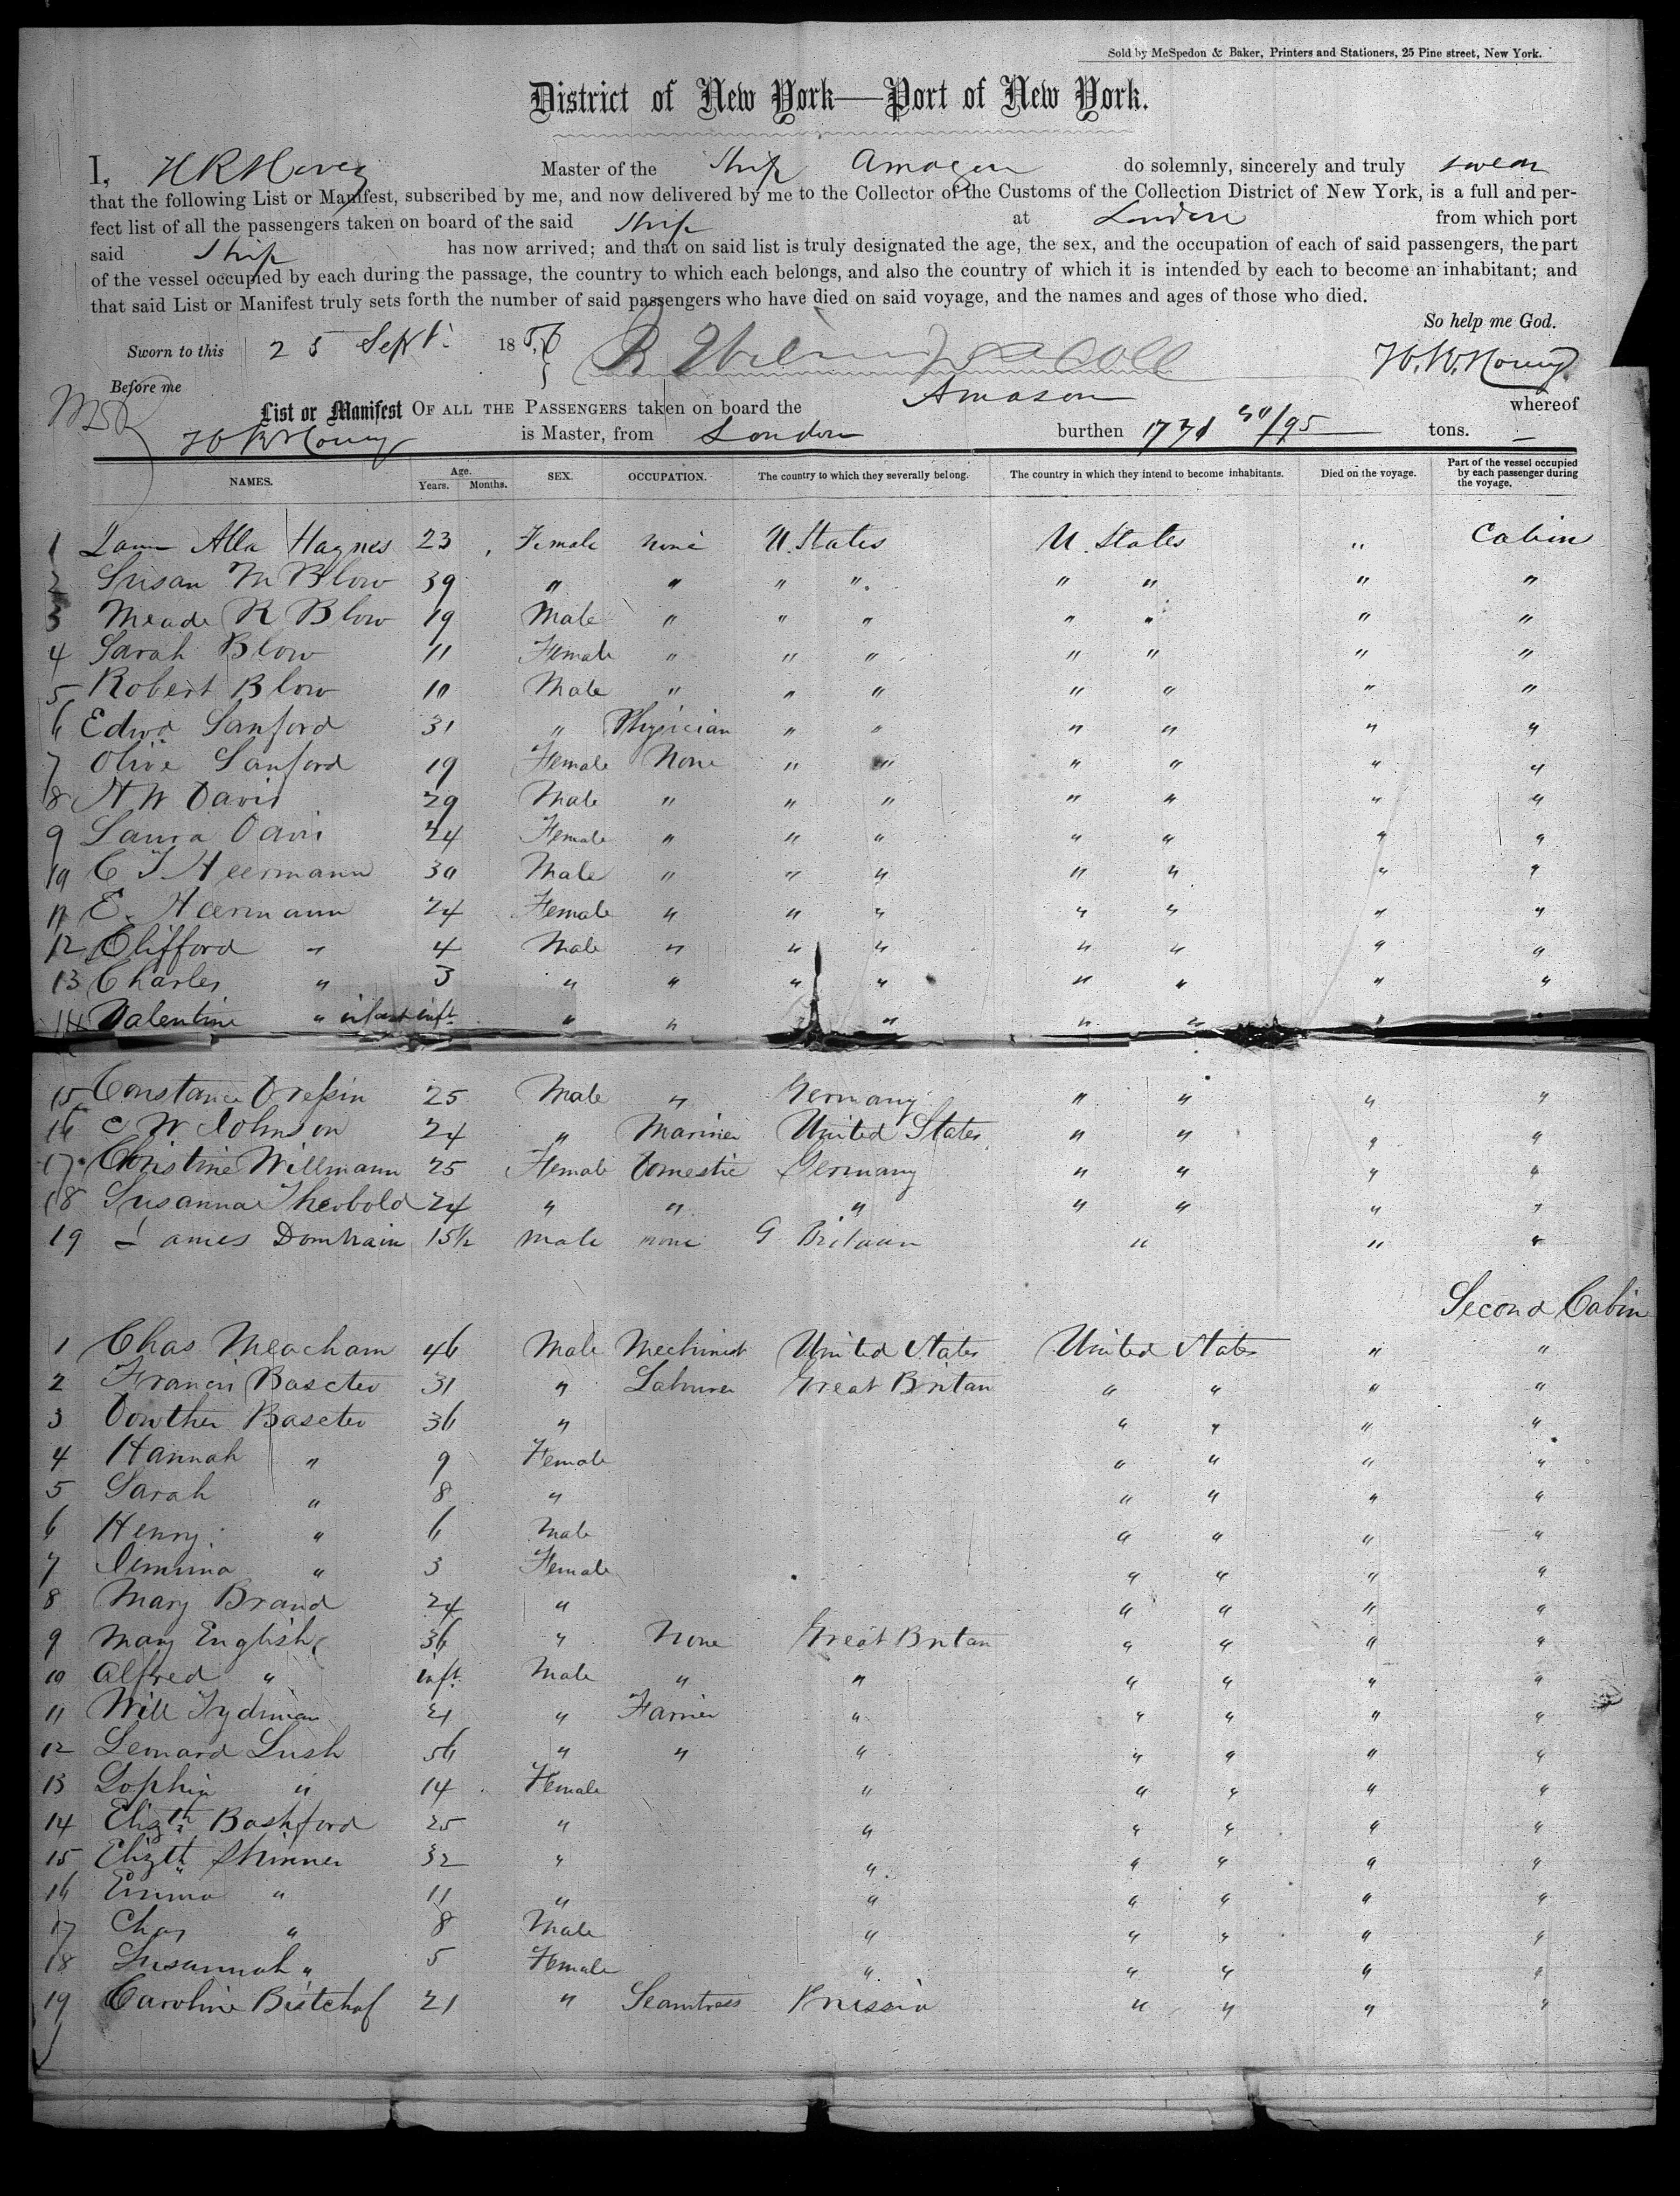 Sold by McSpedon & Baker, Printers and Stationers, 25 Pine street, New York.
District of New York—Port of New York.
I, H R Hovey Master of the Ship Amazon do solemnly, sincerely and truly swear
that the following List or Manifest, subscribed by me, and now delivered by me to the Collector of the Customs of the Collection District of New York, is a full and per-
fect list of all the passengers taken on board of the said Ship at London from which port
said Ship has now arrived; and that on said list is truly designated the age, the sex, and the occupation of each of said passengers, the part
of the vessel occupied by each during the passage, the country to which each belongs, and also the country of which it is intended by each to become an inhabitant; and
that said List or Manifest truly sets forth the number of said passengers who have died on said voyage, and the names and ages of those who died.
So help me God.
Sworn to this 25 Sept. 1856
H. R. Hovey
Before me
List or Manifest OF ALL THE PASSENGERS taken on board the Amazon whereof
H R Hovey is Master, from London burthen 1771 tons.
NAMES. Age. Years. Months. SEX. OCCUPATION. The country to which they severally belong. The country in which they intend to become inhabitants. Died on the voyage. Part of the vessel occupied by each passenger during the voyage.
1 Haynes 23 Female none U. States U. States " Cabin
2 Susan M Blow 39 " " " " " " " "
3 Meade R Blow 19 Male " " " " " " "
4 Sarah Blow 11 Female " " " " " " "
5 Robert Blow 10 Male " " " " " " "
6 Edwd Sanford 31 " Physician " " " " " "
7 Olive Sanford 19 Female None " " " " " "
8 H W Davis 29 Male " " " " " " "
9 Laura Davis 24 Female " " " " " " "
10 C T Heermann 30 Male " " " " " " "
11 E. Heermann 24 Female " " " " " " "
12 Clifford " 4 Male " " " " " " "
13 Charles " 3 " " " " " " " "
14 Valentine " infant inft " " " " " "
15 Constance 25 Male " Germany " " " "
16 C W Johnson 24 " Mariner United States " " " "
17 Christine Willmann 25 Female Domestic Germany " " " "
18 Susanna Theobold 24 " " " " " " "
19 James Domhain 15½ Male none G Britain " " "
Second Cabin
1 Chas Meacham 46 Male Mechinist United States United States " "
2 Francis 31 " Labourer Great Britan " " " "
3 36 " " " " "
4 Hannah " 9 Female " " " "
5 Sarah " 8 " " " " "
6 Henry " 6 Male " " " "
7 Jemima " 3 Female " " " "
8 Mary Brand 24 " " " " "
9 Mary English 36 " None Great Britan " " " "
10 Alfred " inft. Male " " " " " "
11 Will Tydman 21 " Farrier " " " " "
12 Leonard Lush 56 " " " " " " "
13 Sophia " 14 Female " " " " "
14 Elizth Bashford 25 " " " " " "
15 Elizth Skinner 32 " " " " " "
16 Emma " 11 " " " " " "
17 Chas " 8 Male " " " " "
18 Susannah " 5 Female " " " " "
19 Caroline Bistchof 21 " Seamtress Prussia " " " "